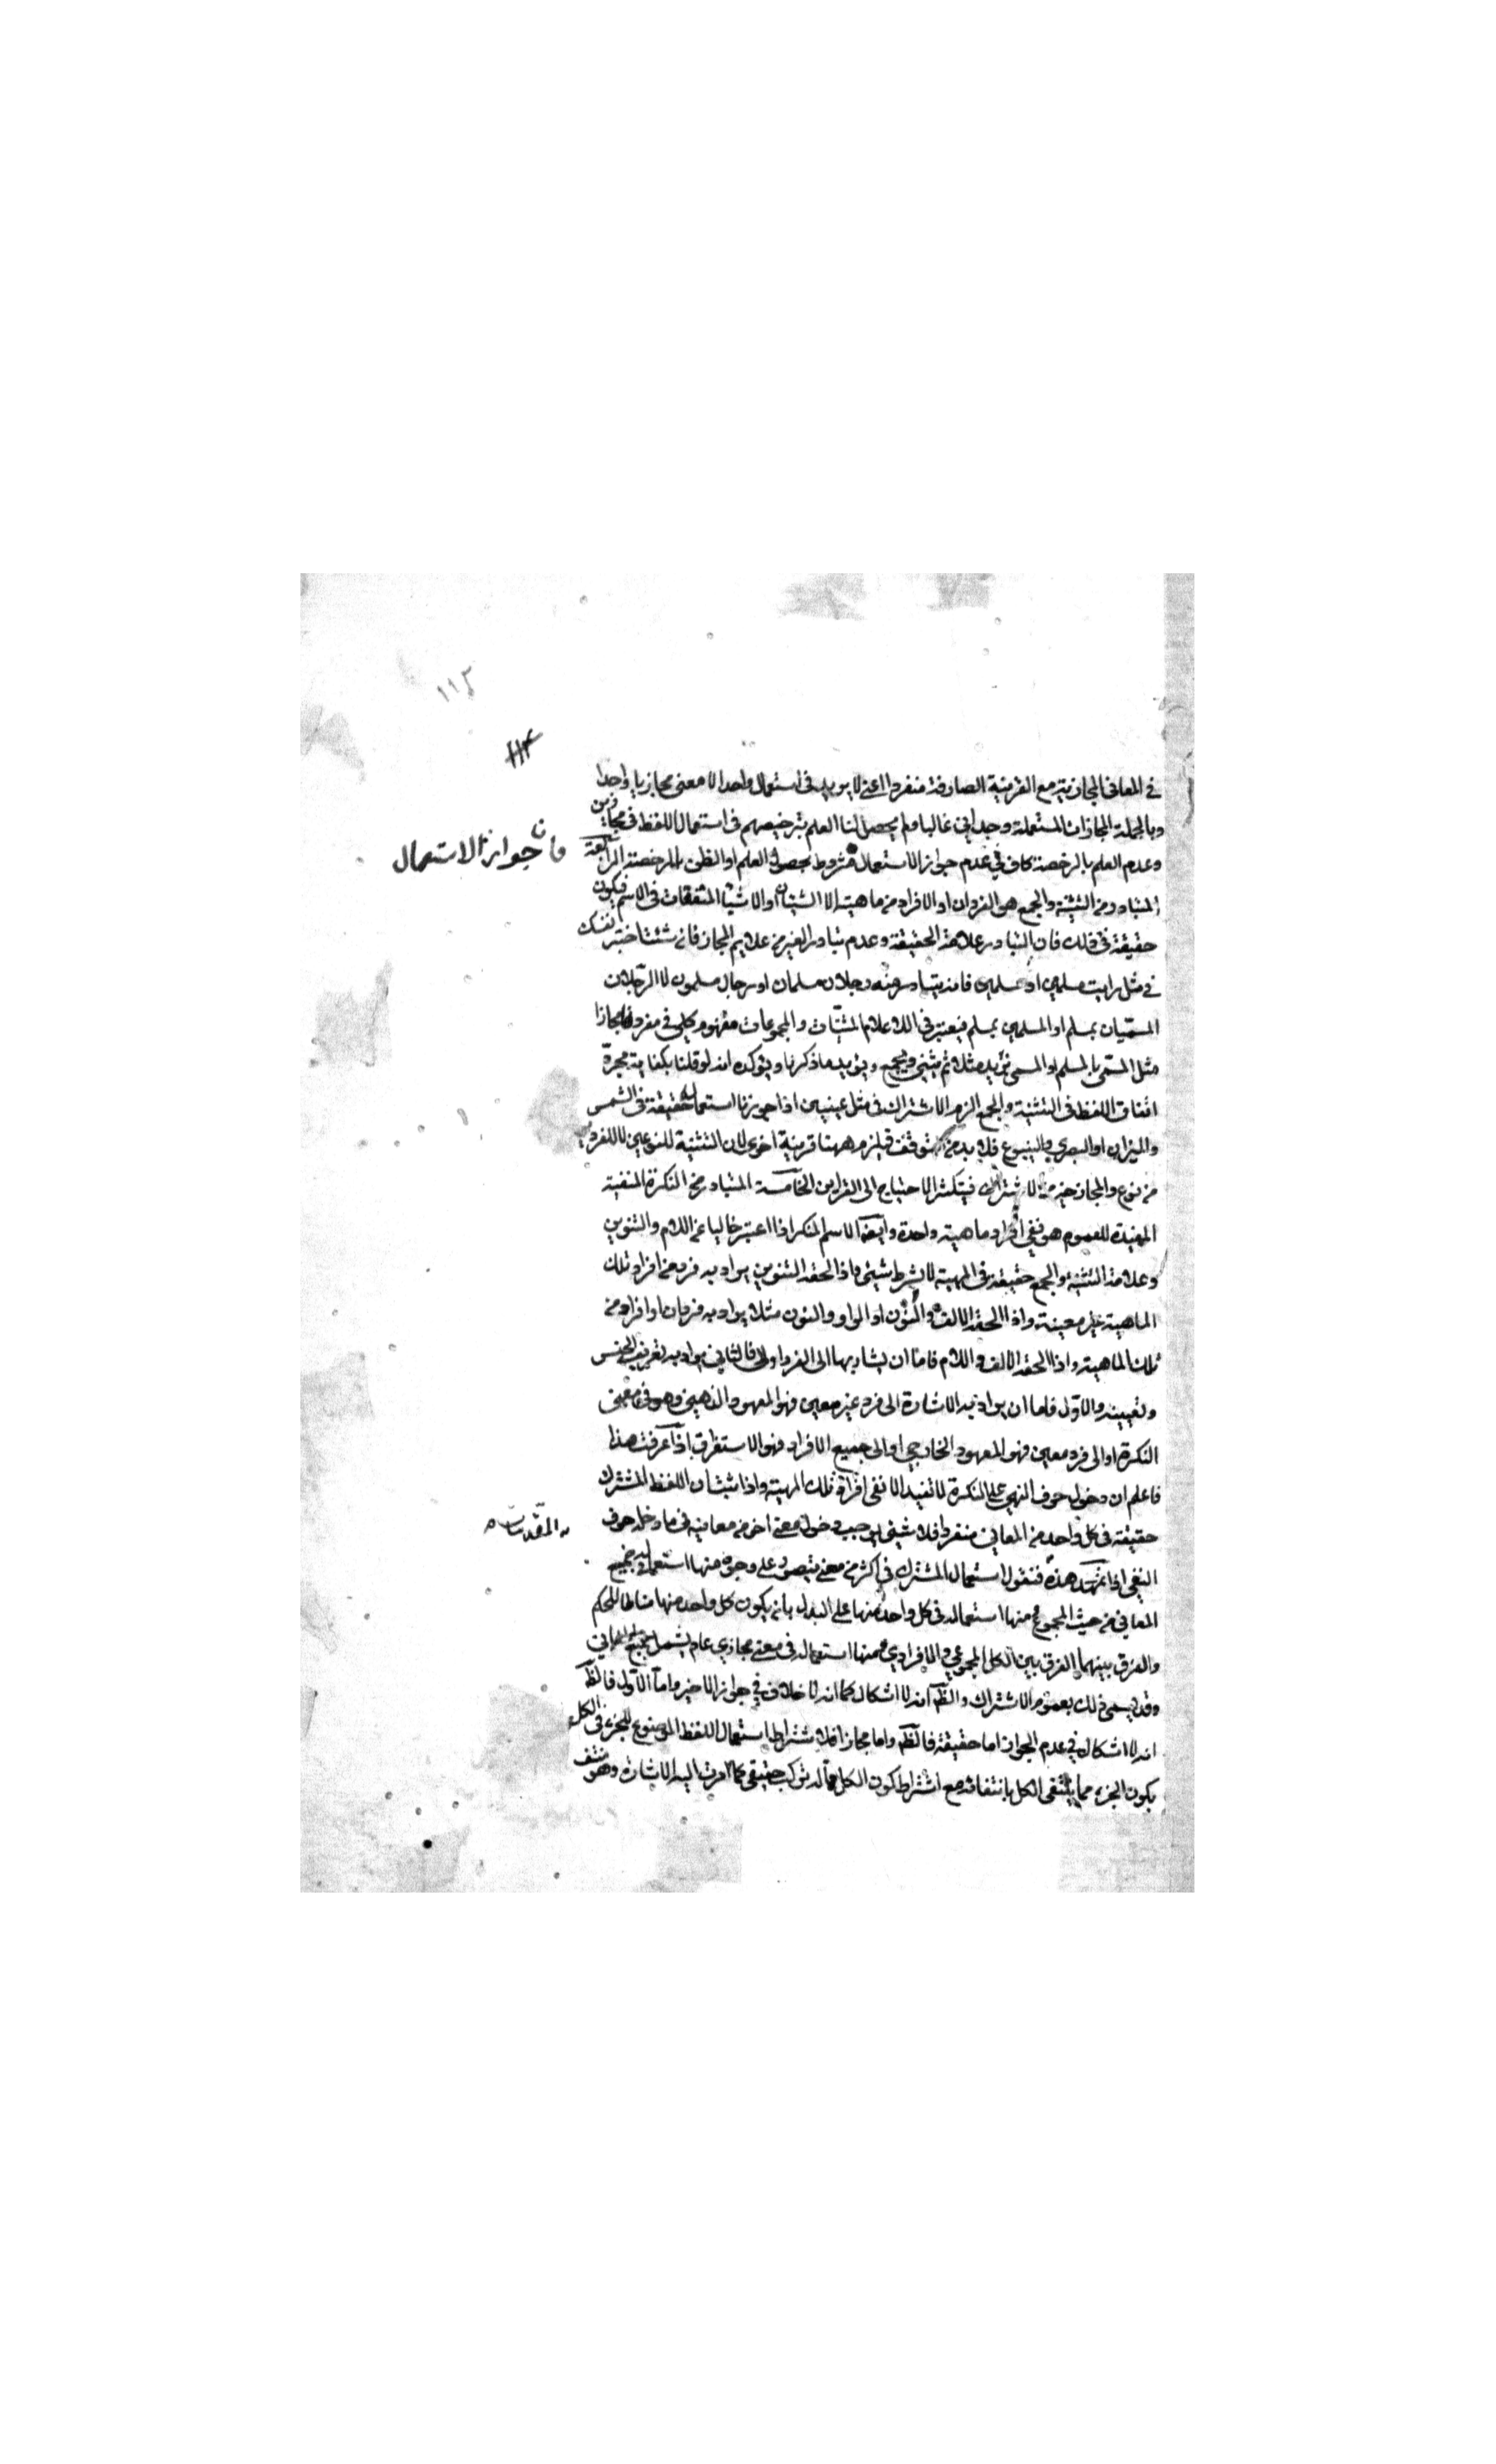 ١١٢
١١٤
في المعاني المجازية مع القرينة الصارفة منفردا اعني لا يريد في استعمال واحد الا معنى مجازيا واحدا
وبالجملة المجازات المستعملة وحداني غالبا ولم يحصل لنا العلم بترخيصهم في استعمال اللفظ في مجازين
وعدم العلم بالرخصة كاف في عدم جواز الاستعمال مشروط بحصول العلم او الظن بالرخصة الرابعة
فان جواز الاستعمال
المتبادر من التثنية والجمع هو الفردان او الافراد من ماهية لا الشيئان او الاشياء المتفقات في الاسم فيكون
حقيقة في ذلك فان التبادر علامة الحقيقة وعدم تبادر الغير من علايم المجاز فان شئت اختبر نفسك
في مثل رايت مسلمين او مسلمين فانه يتبادر منه رجلان مسلمان او رجال مسلمون لا الرجلان
المسميان بمسلم او المسلمين بمسلم فيعتبر في الاعلام المثنيات والمجموعات مفهوم كلي في مفرداتها مجازا
مثل المسمى بالمسلم او المسمى بزيد مثلا ثم يثنى ويجمع ويؤيد ما ذكرنا ويؤكده انه لو قلنا بكفاية مجرد
اتفاق اللفظ في التثنية والجمع لزم الاشتراك في مثل عينين اذا جوزنا استعماله حقيقة في الشمس
والميزان او البصري والينبوع فلا بد من التوقف فيلزم ههنا قرينة اخرى لان التثنية للنوعين لا للفردين
من نوع والمجاز خير من الاشتراك فيتكثر الاحتياج الى القراين الخامسة المتبادر من النكرة المنفية
المفيدة للعموم هو نفي افراد ماهية واحدة وايضا الاسم المنكر اذا اعتبر خاليا عن اللام والتنوين
وعلامة التثنية والجمع حقيقة في المهية لا بشرط شيئ فاذا الحقه التنوين يراد به فرد من افراد تلك
الماهية غير معينة واذا الحقه الالف والنون او الواو والنون مثلا يراد به فردان او افراد من
تلك الماهية واذا الحقه الالف واللام فاما ان يشار بها الى الفرد اولا فالثاني يراد به تعريف الجنس
وتعيينه والاول فاما ان يراد به الاشارة الى فرد غير معين فهو المعهود الذهني وهو في معنى
النكرة او الى فرد معين فهو المعهود الخارجي او الى جميع الافراد فهو الاستغراق اذا عرفت هذا
فاعلم ان دخول حرف النهي على النكرة لا تفيد الا نفي افراد تلك المهية واذا ثبت ان اللفظ المشترك
حقيقة في كل واحد من المعاني منفردا فلا شيئ يوجب دخول معنى اخر من معانيه في ما دخله حرف
النفي اذا تمهد هذه فنقول استعمال المشترك في اكثر من معنى يتصور على وجوه منها استعماله في جميع
المقدمات
المعاني من حيث المجموع منها استعماله في كل واحد منها على البدل بان يكون كل واحد منها مناطا للحكم
والفرق بينهما الفرق بين الكل المجموعي والافرادي ومنها استعماله في معنى مجازي عام يشمل جميع المعاني
وقد يسمى ذلك بعموم الاشتراك والظ انه لا اشكال كما انه لا خلاف في جواز الاخير واما الاول فالظ
انه لا اشكال في عدم الجواز اما حقيقة فالظ واما مجازا فلاشتراط استعمال اللفظ الموضوع للجزء في الكل
بكون الجزء مما ينتفي الكل بانتفائه مع اشتراط كون الكل مما له تركب حقيقي كما مرت اليه الاشارة وهو منتف